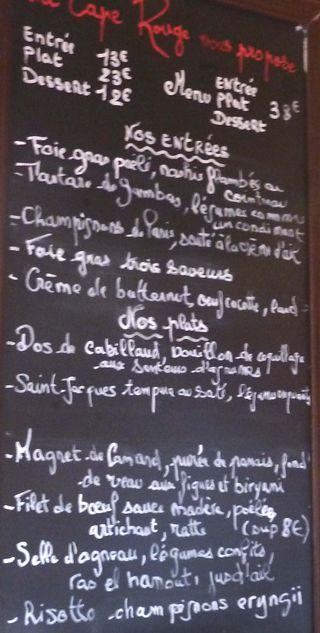 Cape Rouge vous propose
Entrée 13€
Plat 23€
Dessert 12€
Menu Entrée
Plat 38€
Dessert
Nos Entrées
- Foie gras poêlé, flambés au
cointreau
- Tartare de gambas, légumes comme
un condiment
- Champignons de Paris, sauté à la crème d'ail
- Foie gras trois saveurs
- Crème de butternut, oeuf cocotte, lard
Nos plats
- Dos de Cabillaud, bouillon de coquillage
aux senteurs d'agrumes
- Saint-Jacques tempura au saté, légumes croquants
- Magret de Canard, purée de panais, fond
de veau aux figues et biryani
- Filet de boeuf sauce madère, poêlée
artichaut, ratte (sup 8€)
- Selle d'agneau, légumes confits,
ras el hanout, jus d'ail
- Risotto champignons eryngii